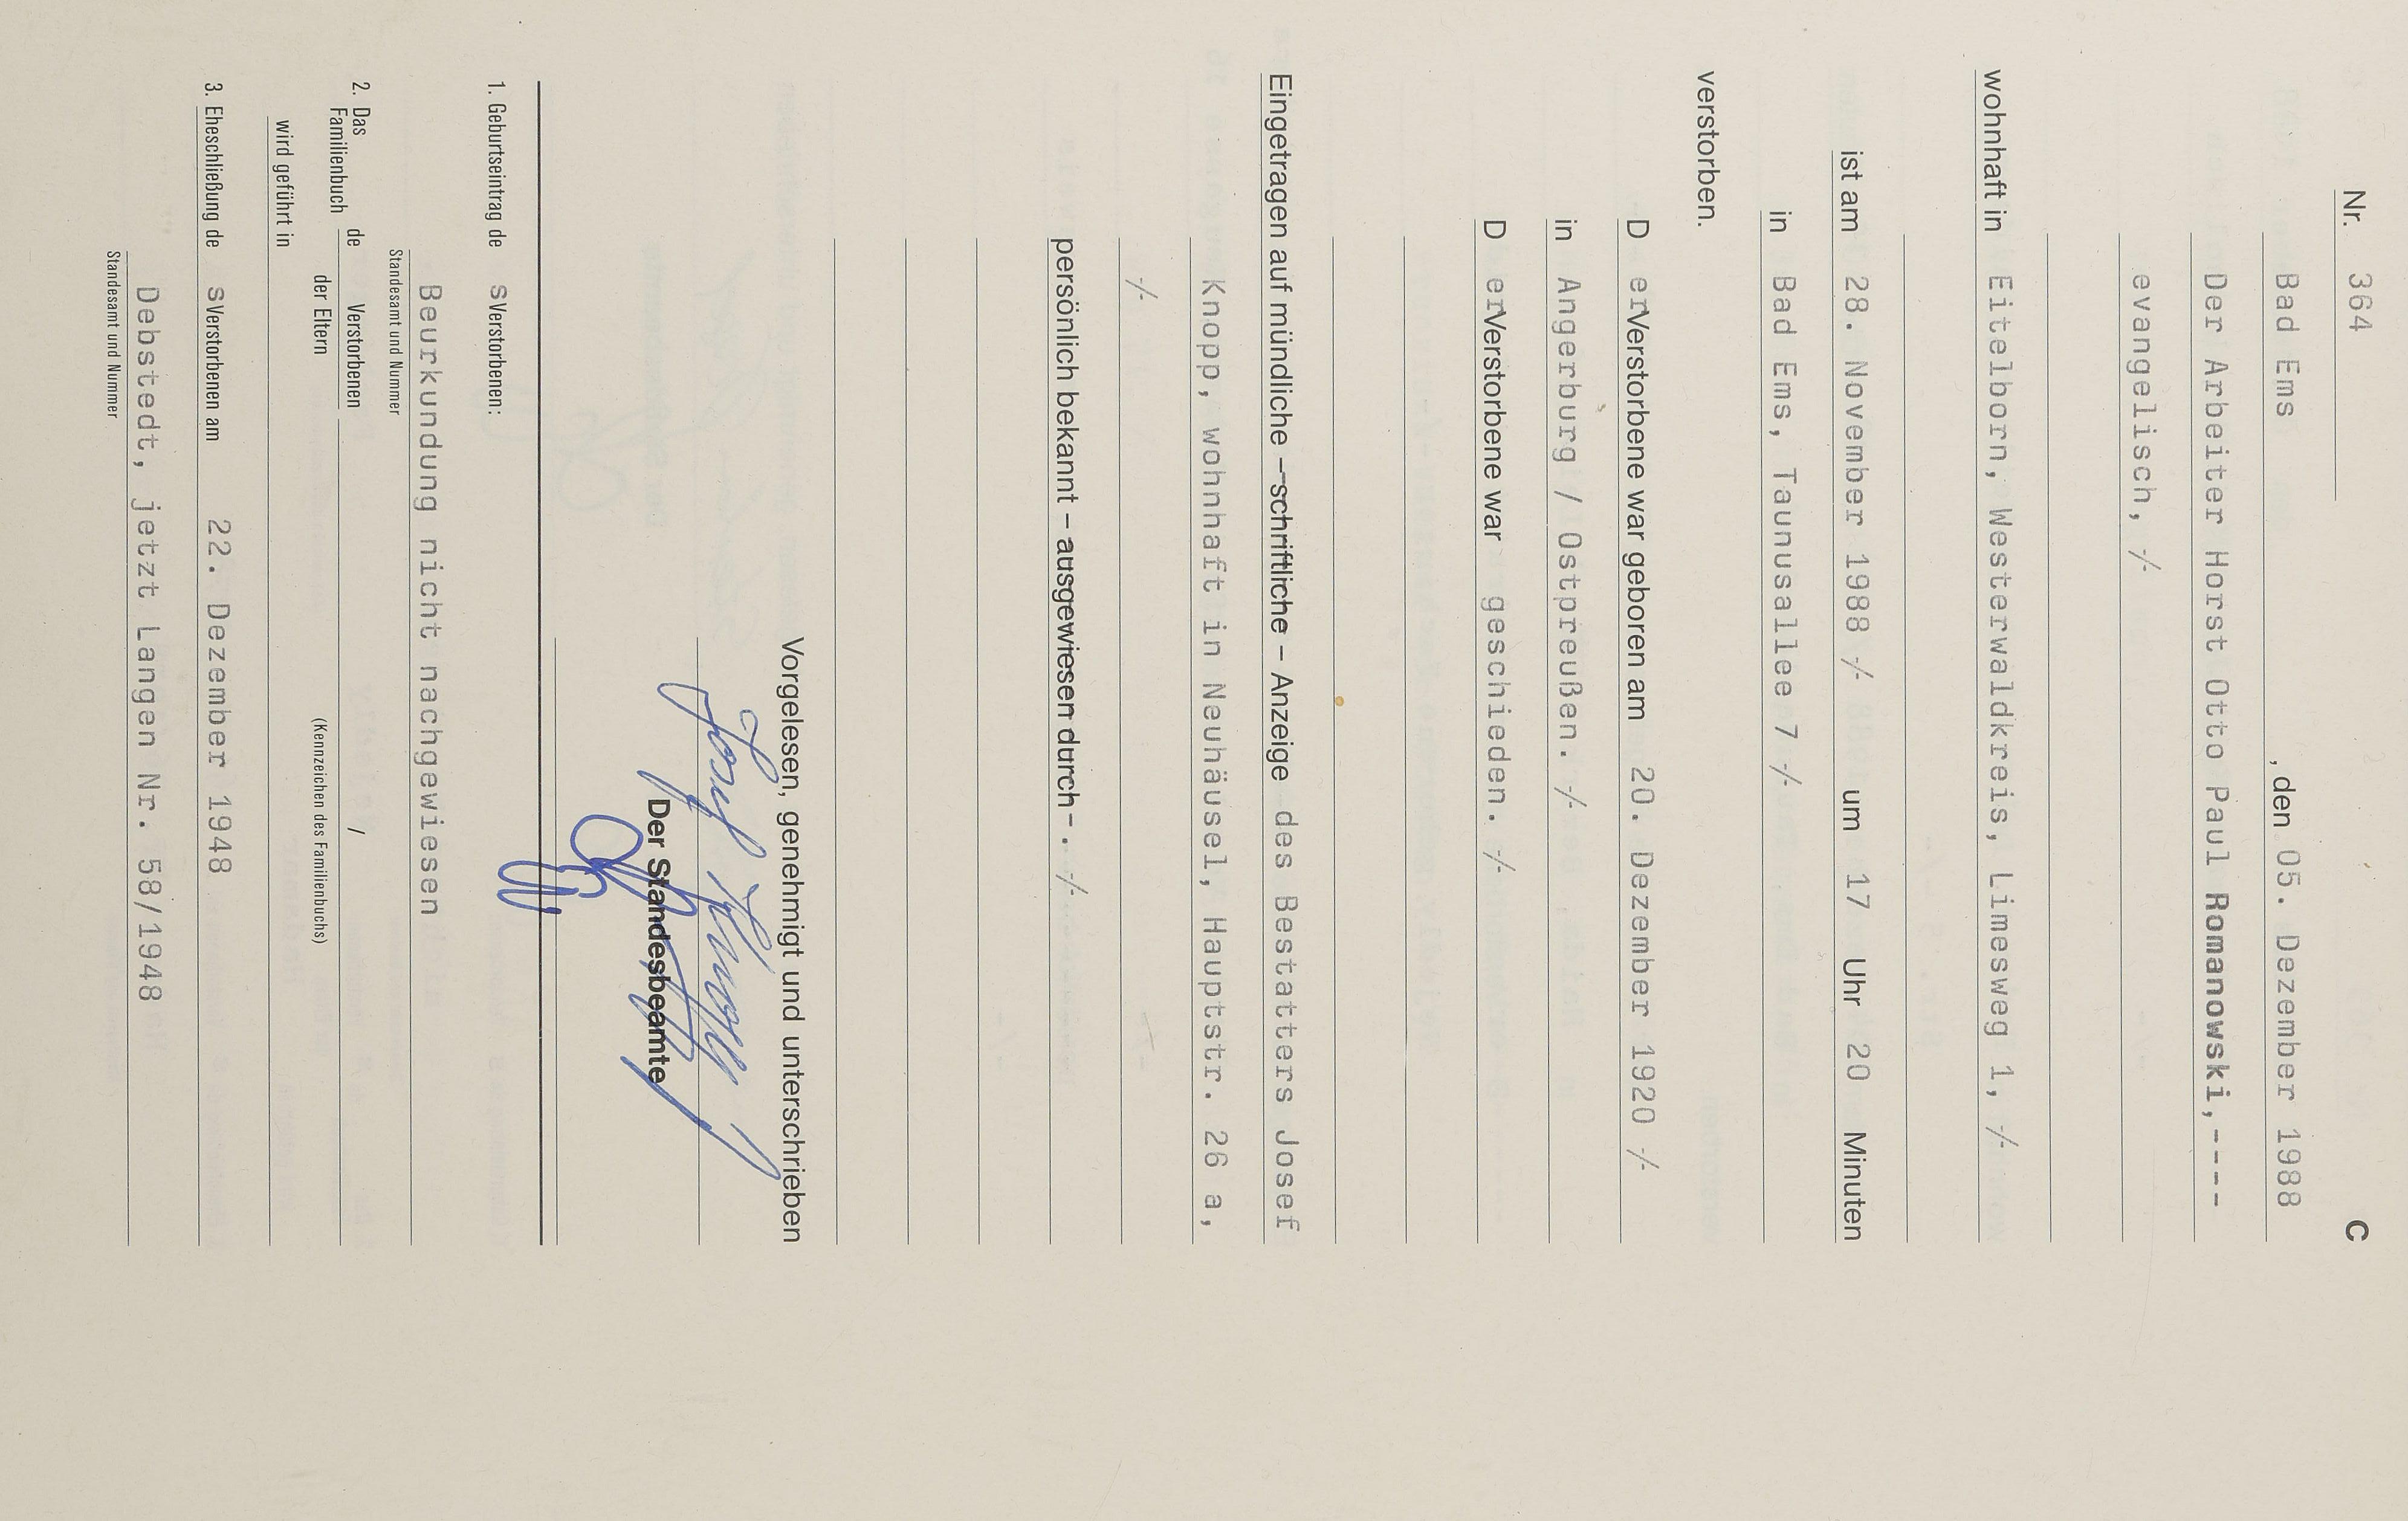 Nr. 364 C
Bad Ems , den 05. Dezember 1988
Der Arbeiter Horst Otto Paul Romanowski,----
evangelisch, -/-
wohnhaft in Eitelborn, Westerwaldkreis, Limesweg 1, -/-
ist am 28. November 1988 -/- um 17 Uhr 20 Minuten
in Bad Ems, Taunusallee 7 -/-
verstorben.
D er Verstorbene war geboren am 20. Dezember 1920 -/-
in Angerburg / Ostpreußen. -/-
D er Verstorbene war geschieden. -/-
Eingetragen auf mündliche – schriftliche – Anzeige des Bestatters Josef
Knopp, wohnhaft in Neuhäusel, Hauptstr. 26 a,
-/-
persönlich bekannt – ausgewiesen durch – . -/-
Vorgelesen, genehmigt und unterschrieben
Josef Knopp
Der Standesbeamte
1. Geburtseintrag de s Verstorbenen:
Beurkundung nicht nachgewiesen
Standesamt und Nummer
2. Das Familienbuch de Verstorbenen /
der Eltern (Kennzeichen des Familienbuchs)
wird geführt in
3. Eheschließung de s Verstorbenen am 22. Dezember 1948
Debstedt, jetzt Langen Nr. 58/1948
Standesamt und Nummer